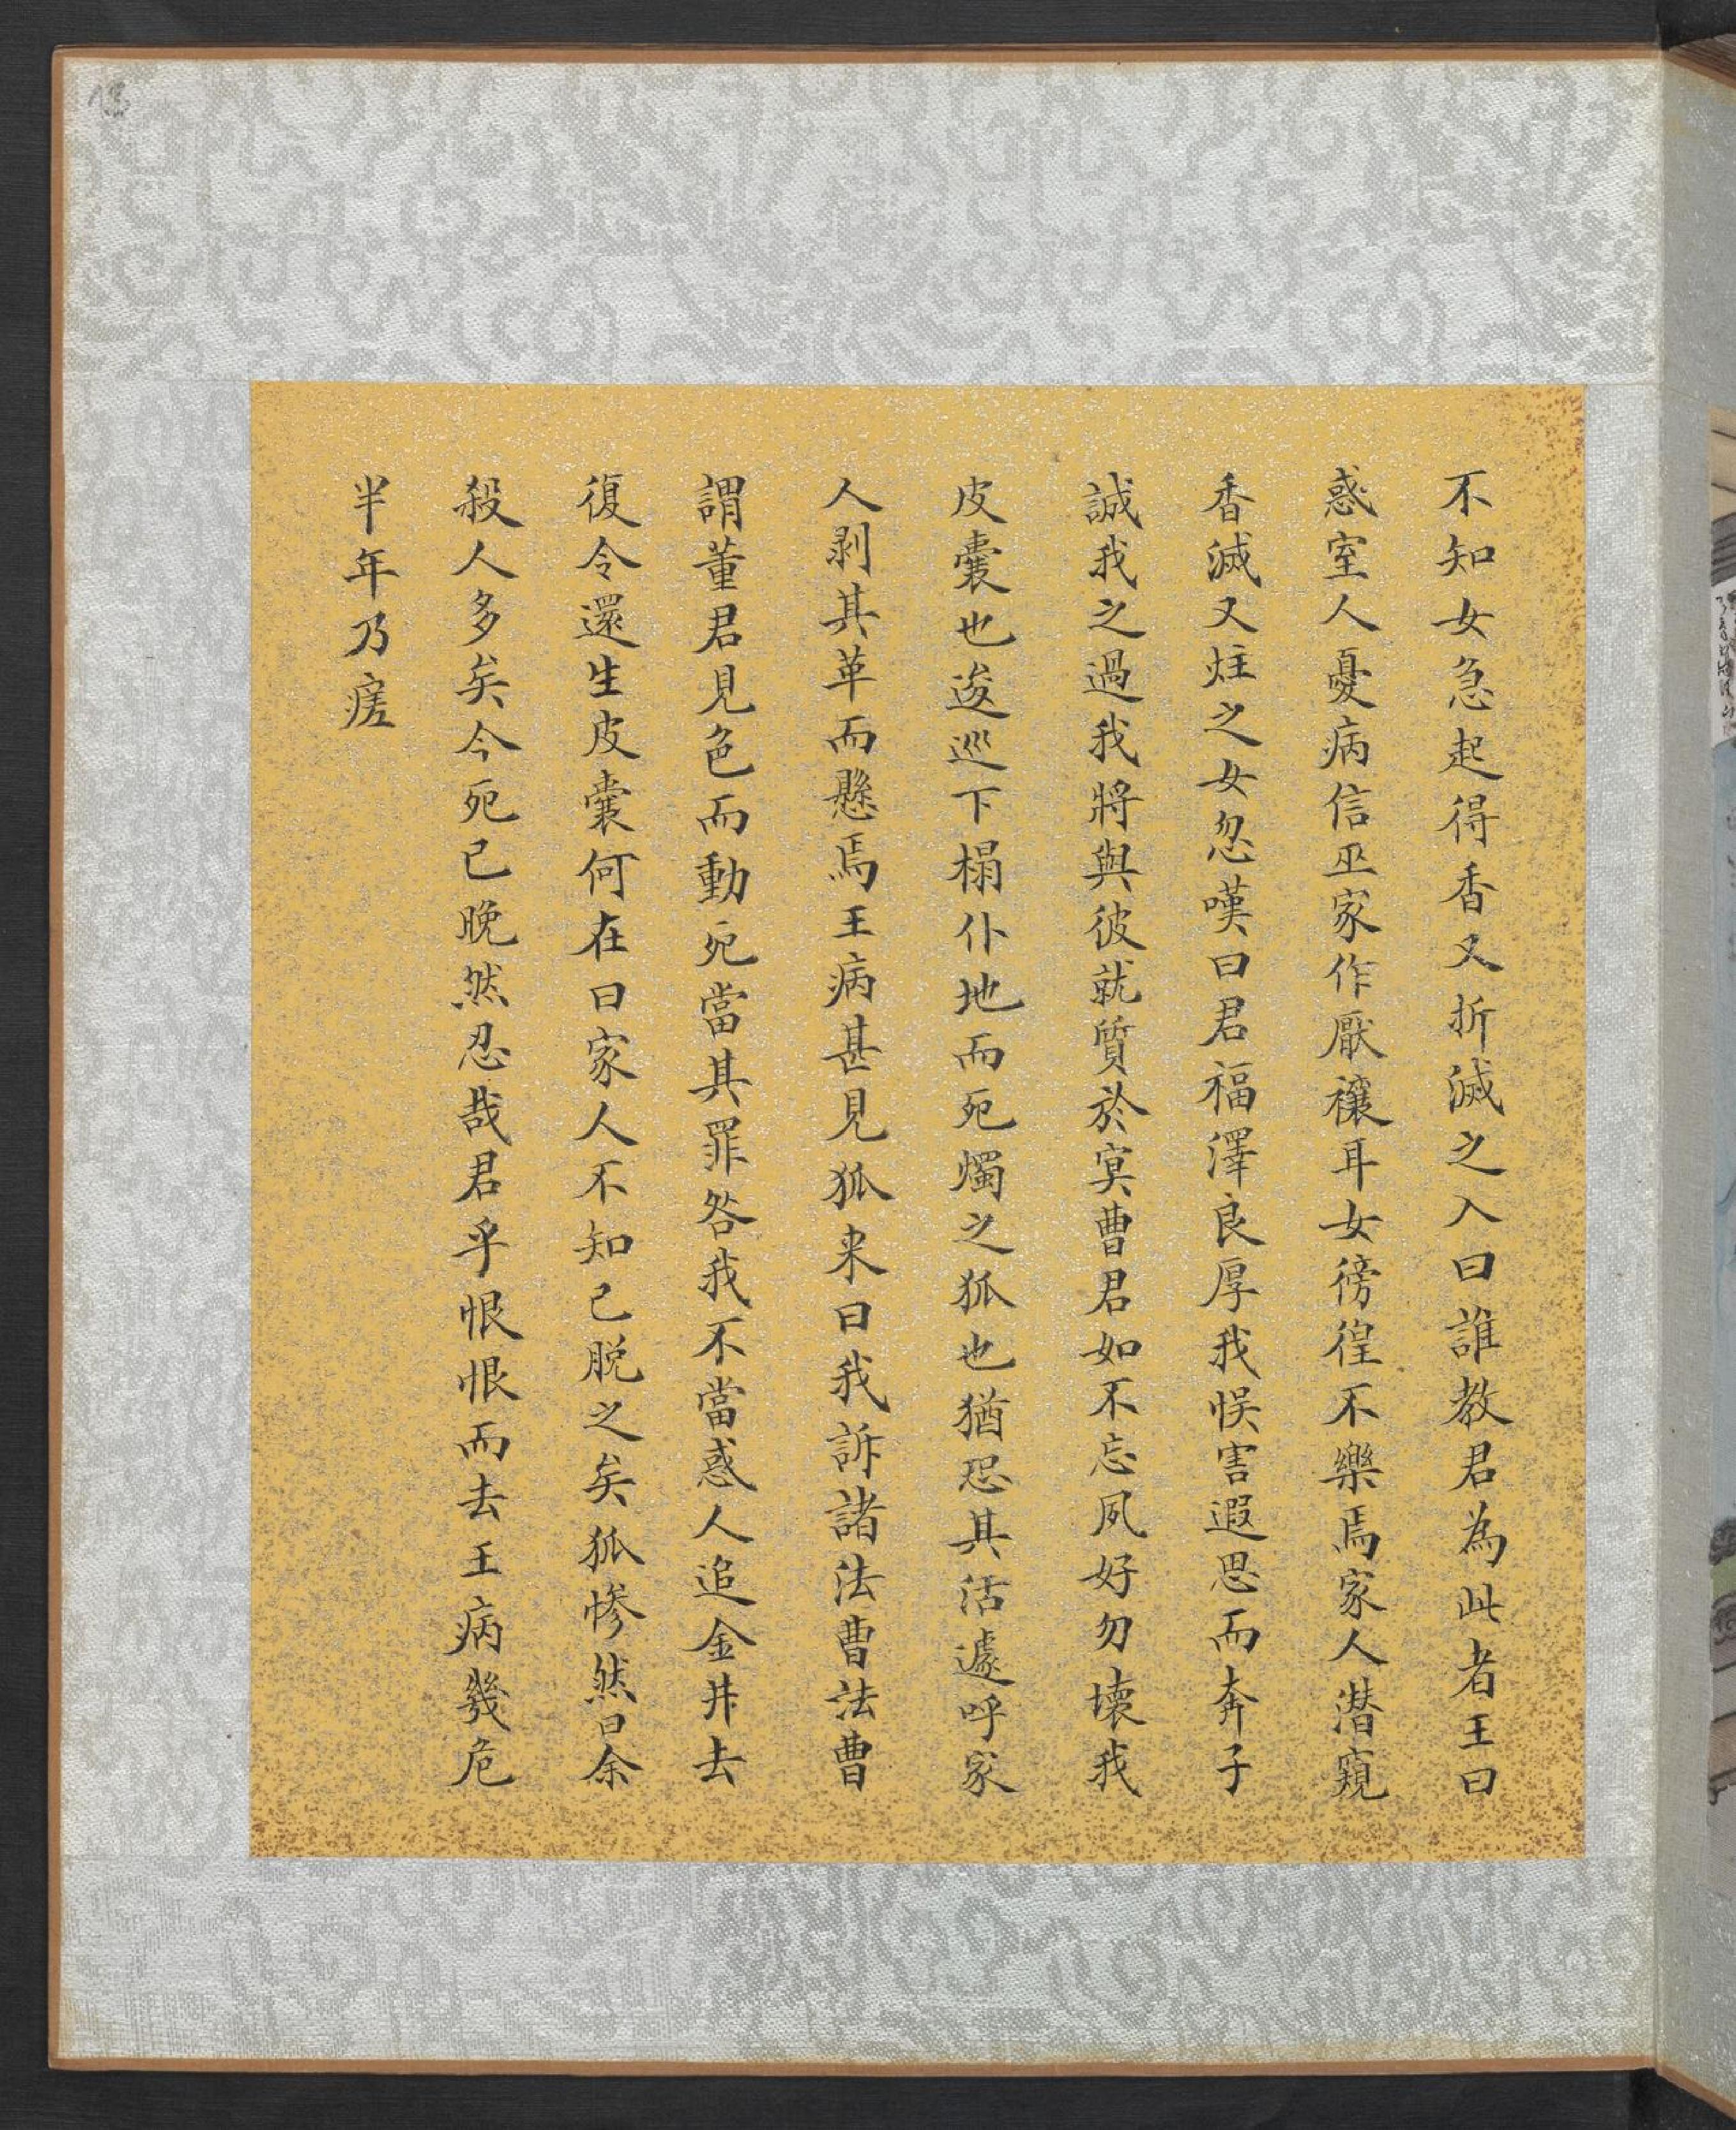 不知女急起得香又折滅之入曰誰教君為此者王曰
惑室人憂病信巫家作厭禳耳女徬徨不樂焉家人潜窺
香滅又炷之女忽嘆曰君福澤良厚我悞害遐思而奔子
誠我之過我將與彼就質於冥曹君如不忘夙好勿壞我
皮囊也逡巡下榻仆地而死燭之狐也猶恐其活遽呼家
人剥其革而懸焉王病甚見狐来曰我訴諸法曹法曹
謂董君見色而動死當其罪咎我不當惑人追金丹去
復令還生皮囊何在曰家人不知已脱之矣狐惨然曰余
殺人多矣今死已晚然忍哉君乎恨恨而去王病幾危
半年乃瘥